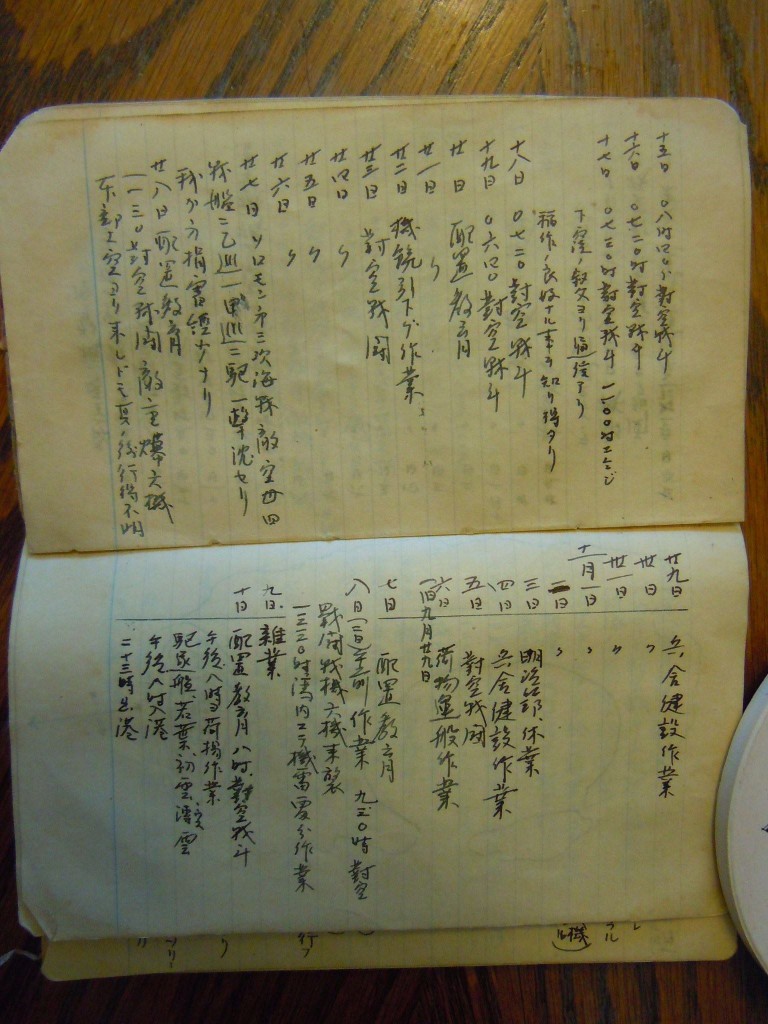 十五日 〇八時四〇分 對空戰斗
十六日 〇七二〇時 對空戰斗
十七日 〇七三〇時 對空戰斗 一一〇〇時
下窪ノ叙父ヨリ通信アリ
稲作ノ良好ナル事ヲ知リ得タリ
十八日 〇七二〇 對空戰斗
十九日 〇六四〇 對空戰斗
廿日 配置教育
廿一日 〃
廿二日 機銃引下ゲ作業
廿三日 對空戰闘
廿四日 〃
廿五日 〃
廿六日 〃
廿七日 ソロモン第三次海戰 敵空母四
戰艦二 乙巡一 甲巡二 駆一 擊沈セリ
我ガ方損害軽少ナリ
廿八日 配置教育
一一三〇時 對空戰闘 敵重爆六機
東部上空ヨリ来レドモ其ノ後行衛不明
廿九日 兵舎建設作業
卅日 〃
卅一日 〃
十一月一日 〃
二日 〃
三日 明治節 休業
四日 兵舎建設作業
五日 對空戰闘
六日 荷物運搬作業
(旧九月廿九日
七日 配置教育
八日 作業 九三〇時 對空
戰闘 戰機六機来襲
一三三〇時 湾内ニテ機雷 作業
九日 雑業
十日 配置教育 八時 對空戰斗
午後八時荷揚作業
駆逐艦、若葉、初雲
午後八時入港
二十三時出港